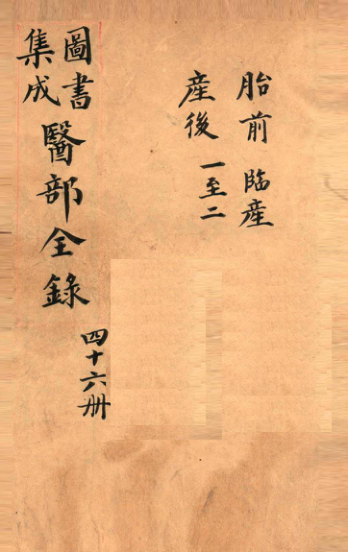 胎前 臨産
産後 一至二
圖書
集成
醫部全錄
四十六冊